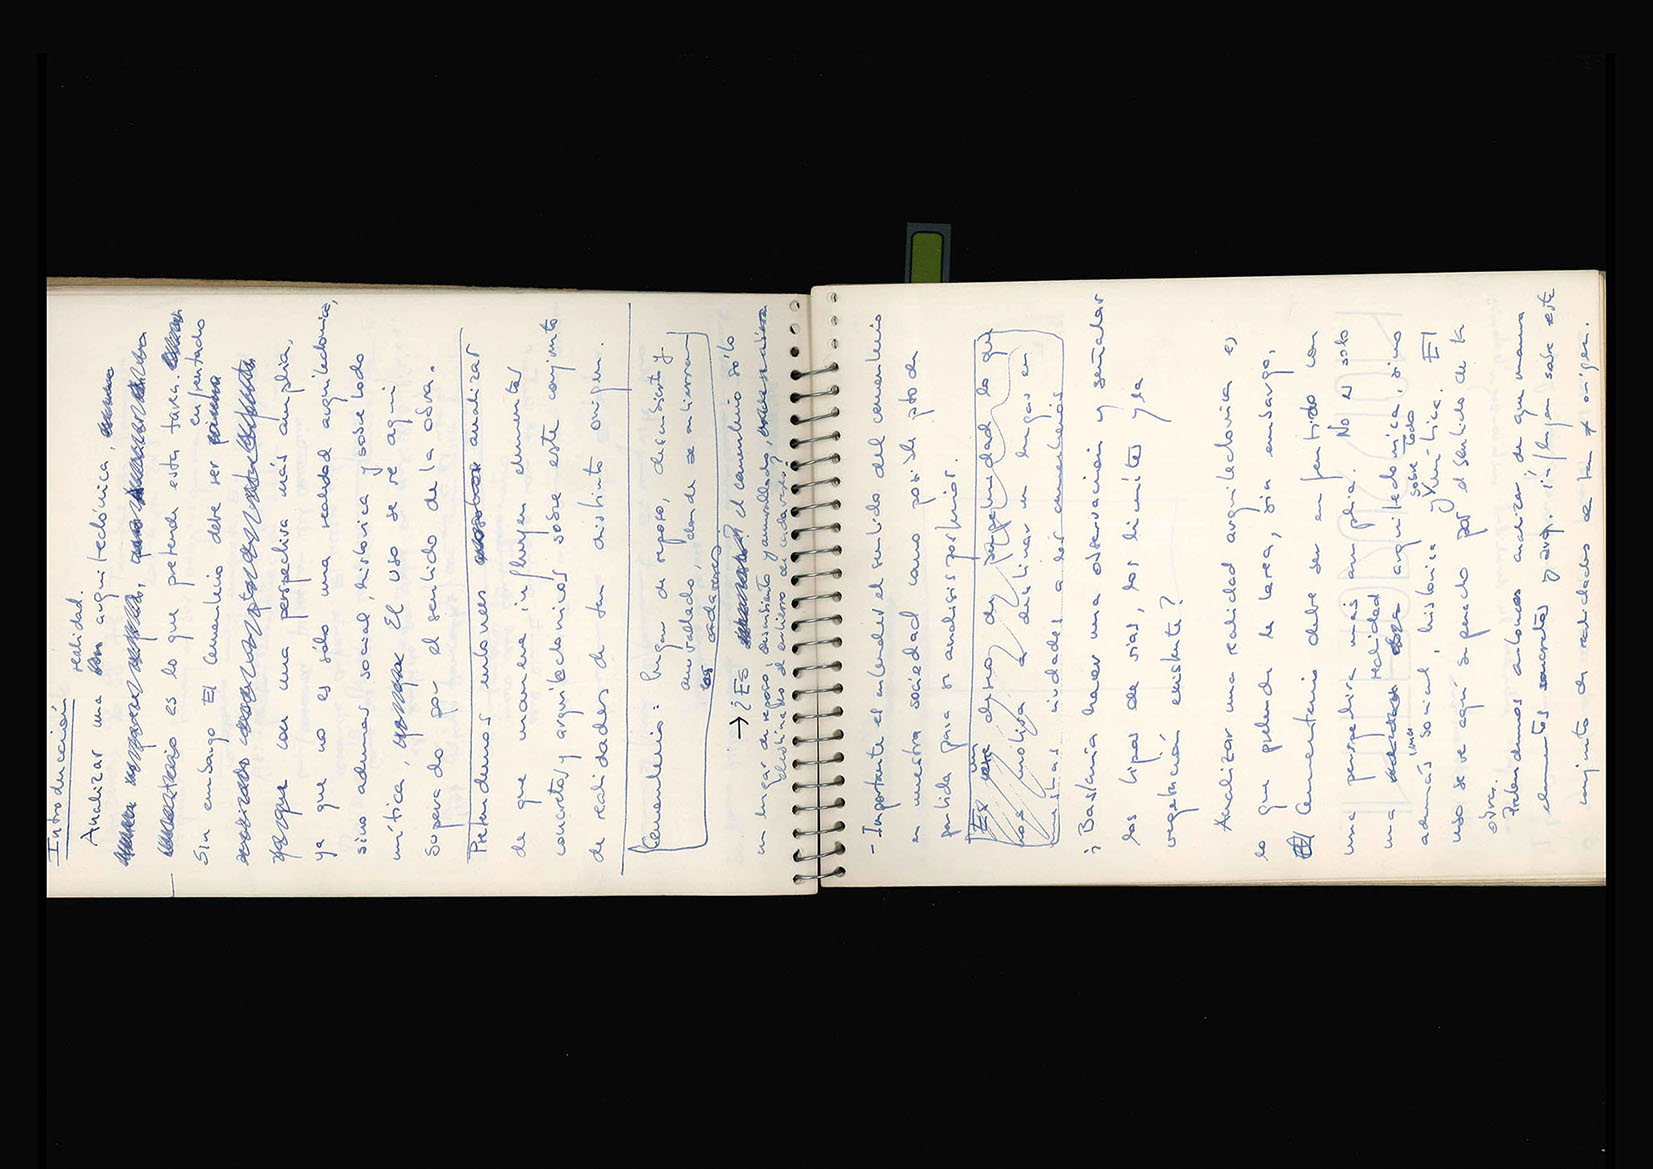 Introducción
realidad.
Analizar una arquitectónica,
es lo que pretende esta tarea.
enfrentado
Sin embargo El Cementerio debe ser
con una perspectiva más amplia,
ya que no es sólo una realidad arquitectonica,
sino además social, historica y sobre todo
mítica, El uso se ve aqui
superado por el sentido de la obra.
Pretendemos entonces analizar
de que manera influyen elementos
concretos y arquitectonicos sobre este conjunto
de realidades de tan distinto origen.
Cementerio: Lugar de reposo, descubierto y
amurallado, donde se entierran
los cadaveres
→ ¿Es el cementerio sólo
un lugar de reposo, descubierto y amurallado,
destinado al entierro de cadaveres?
- Importante el entender el sentido del cementerio
en nuestra sociedad como posible pto de
partida para su analisis posterior.
Es un
nos motiva a destinar un lugar en
nuestras ciudades a los cementerios
¿Bastaria hacer una observación y señalar
los tipos de vias, los limites y la
vegetación existente?
Analizar una realidad arquitectonica es
lo que pretende la tarea, sin embargo,
El Cementerio debe ser enfrentado con
una perspectiva más amplia. No es solo
una realidad arquitectonica, sino
además social, historica y sobre todo mítica. El
uso se ve aquí superado por el sentido de la
obra.
Pretendemos entonces analizar de que manera
elementos concretos y arq. influyen sobre este
conjunto de realidades de tan ≠ origen.